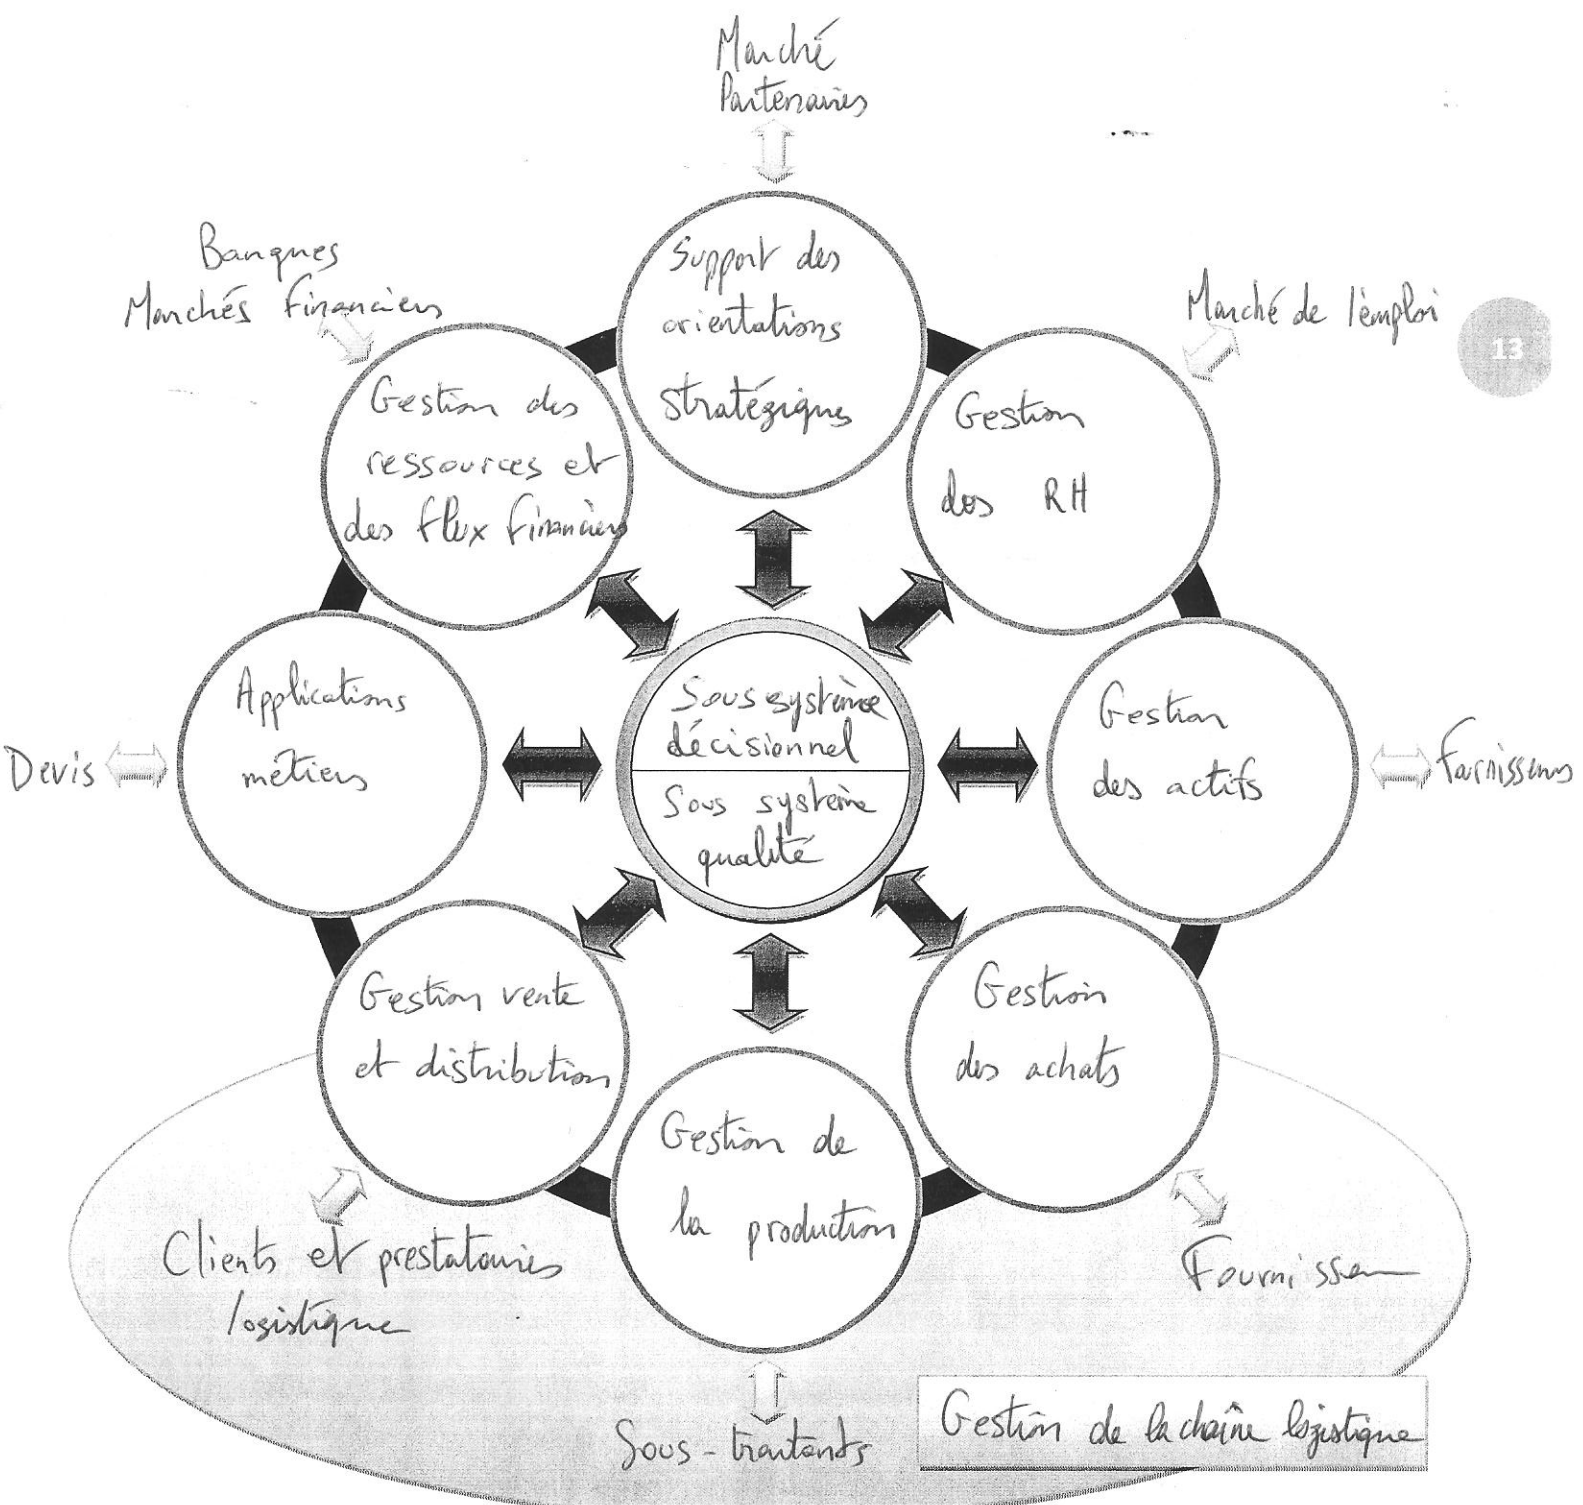 Marché
Partenaires
Banques
Marchés financiers
Support des
orientations
stratégiques
Marché de l'emploi
13
Gestion des
ressources et
des flux financiers
Gestion
des RH
Applications
métiers
Devis
Sous système
décisionnel
Sous système
qualité
Gestion
des actifs
Fournisseurs
Gestion vente
et distribution
Gestion
des achats
Gestion de
la production
Clients et prestataires
logistique
Fournisseur
Sous-traitants
Gestion de la chaîne logistique